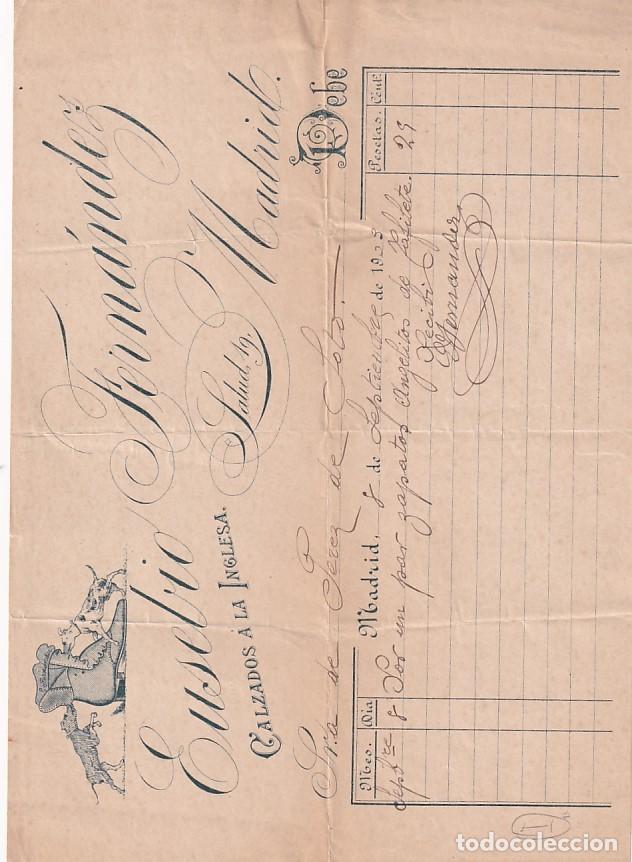 Eusebio Fernández
CALZADOS Á LA INGLESA.
Salud, 19, Madrid.
Sra. de Perez de Soto Debe
Madrid, 8 de Septiembre de 1903
Mes. Día Pesetas. Cént.
Sepbre 8 Por un par zapatos de 29
Recibí
Fernandez
todocoleccion